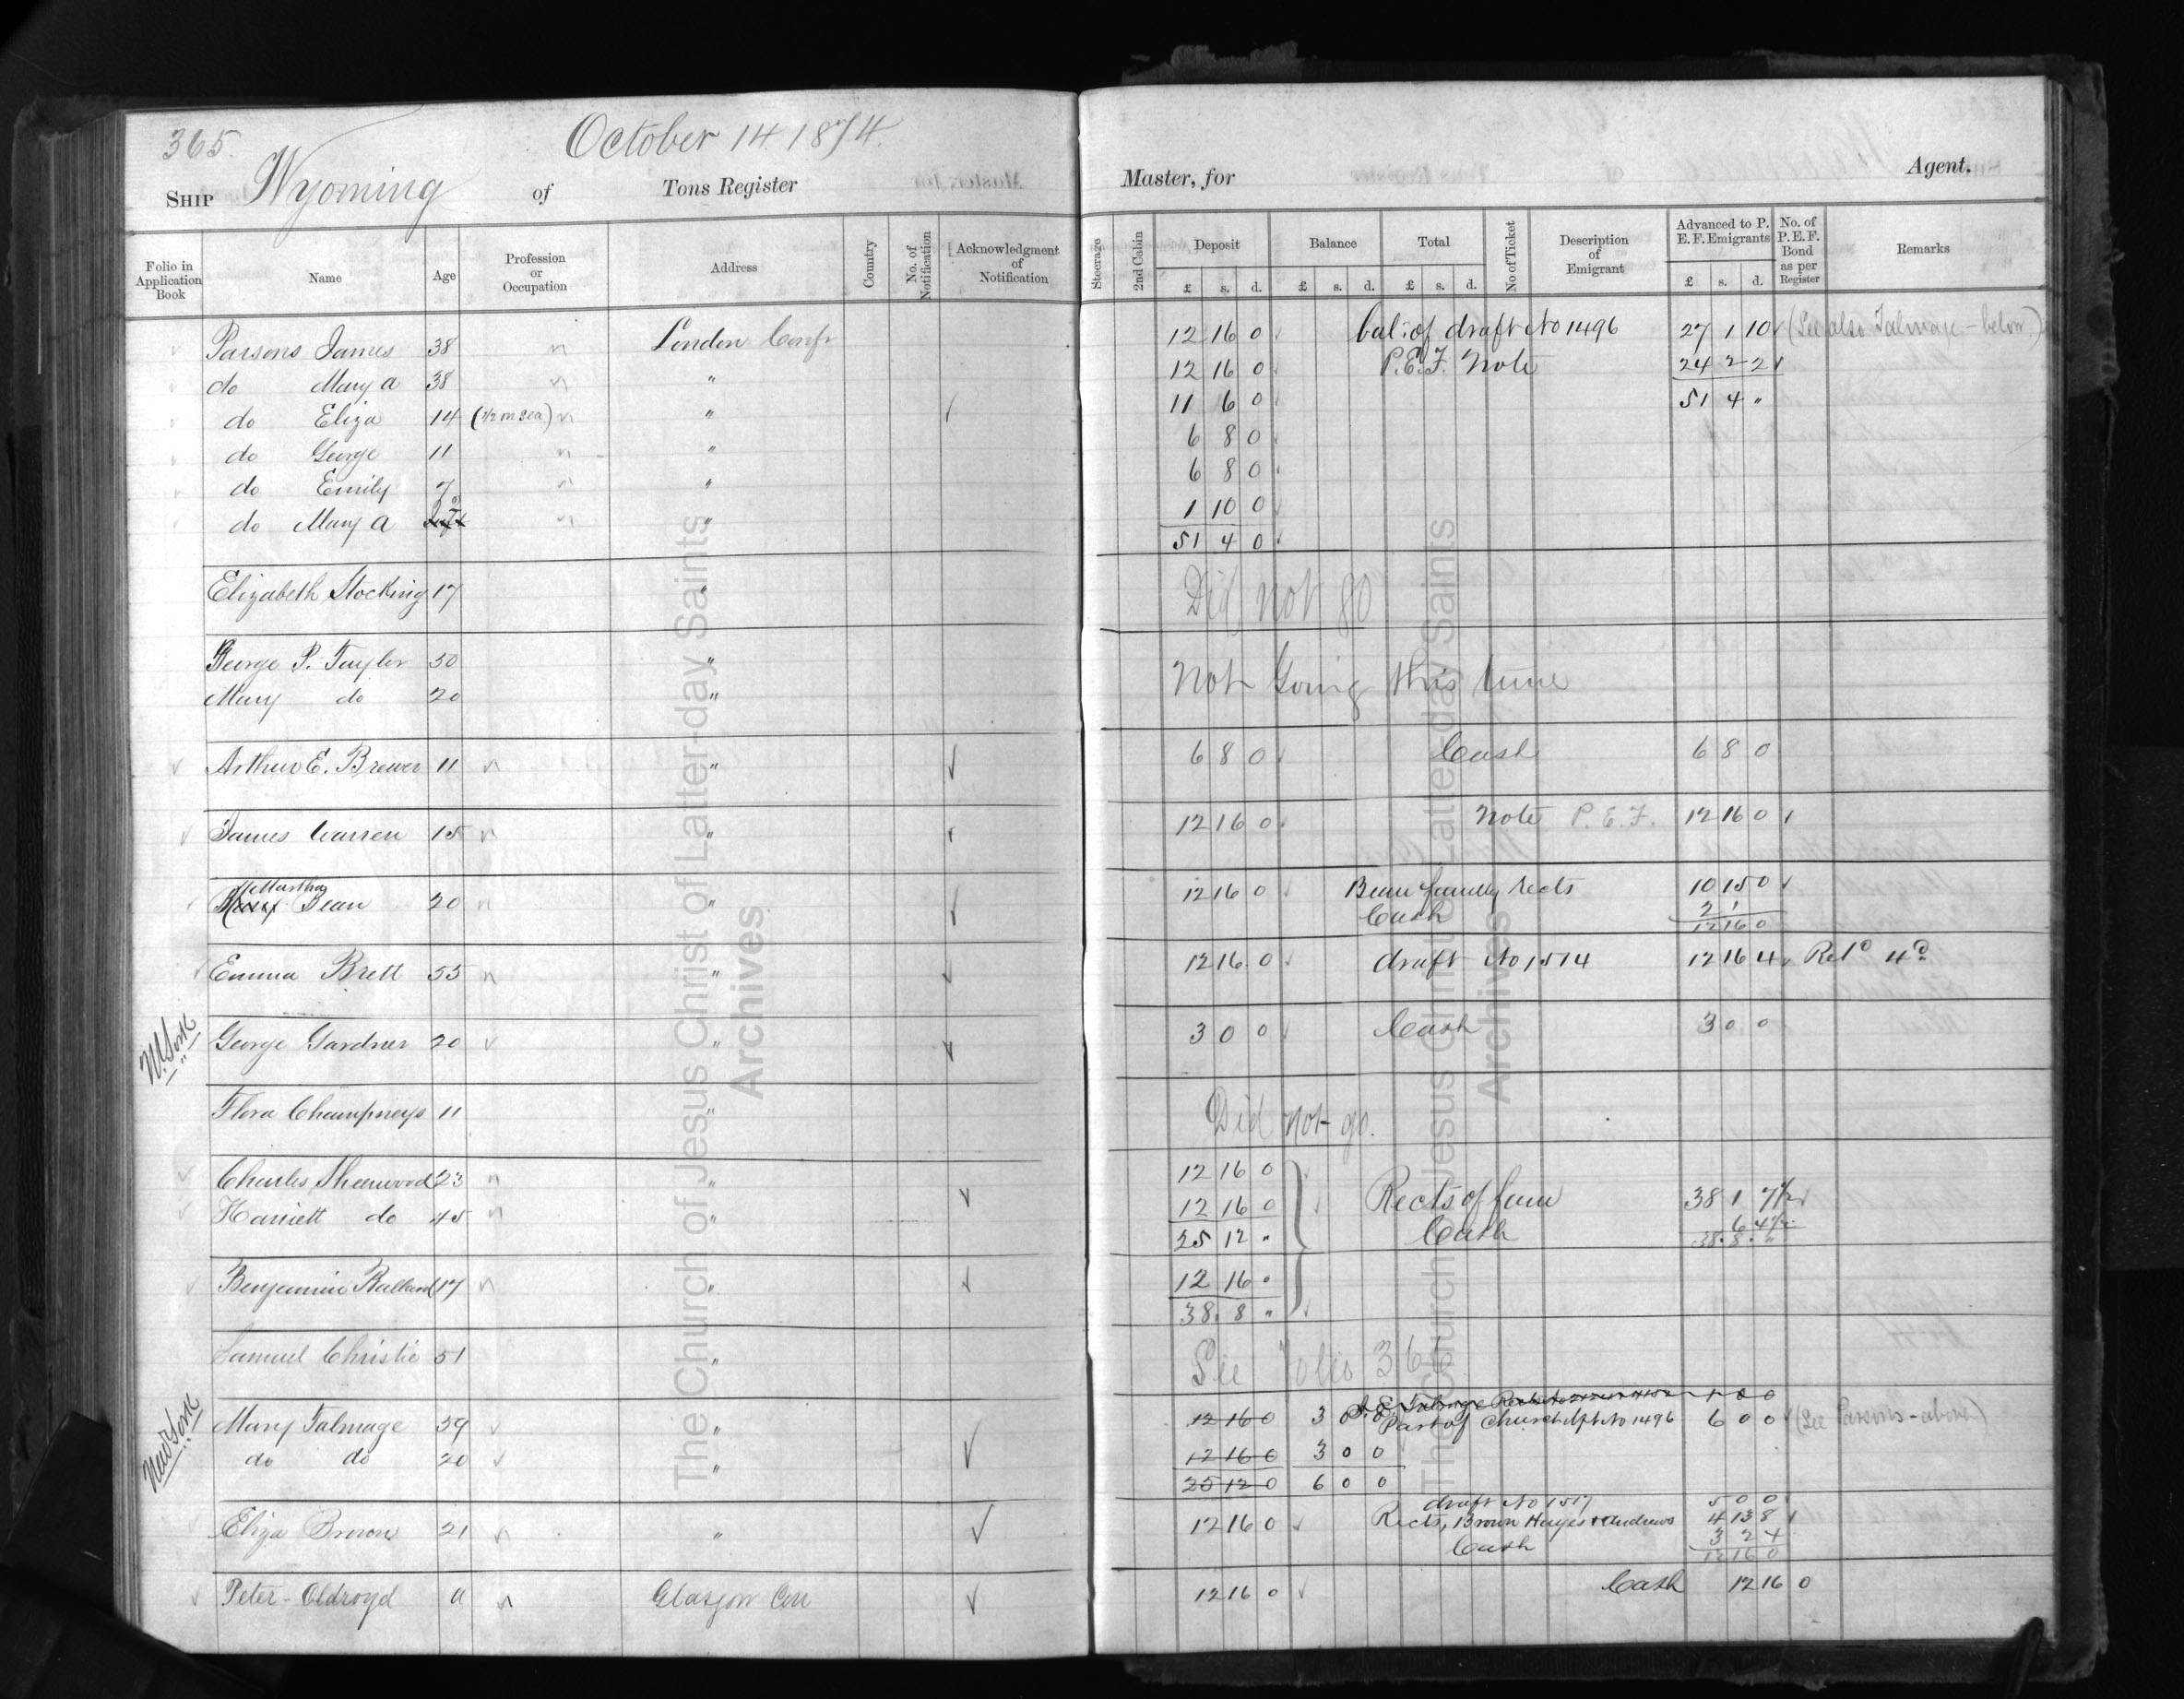 365.
October 14. 1874.
Ship Wyoming of Tons Register Master, for Agent.
Folio in Application Book Name Age Profession or Occupation Address Country No. of Notification Acknowledgment of Notification Steerage 2nd Cabin Deposit Balance Total No of Ticket Description of Emigrant Advanced to P. E. F. Emigrants No. of P.E.F. Bond as per Register Remarks
£ s. d. £ s. d. £ s. d. £ s. d.
Parsons James 38 London Conf 12 16 0 bal: of draft No 1496 27 1 10 (See also Talmage - below)
do Mary A 38 " 12 16 0 P.E.F. Note 24 2 2
do Eliza 14 (1/2 m sea) " 11 6 0 51 4 "
do George 11 " 6 8 0
do Emily 7 " 6 8 0
do Mary A " 1 10 0
51 4 0
Elizabeth Stocking 17 " Did not go
George P. Taylor 50 " Not Going this time
Mary do 20 "
Arthur E. Brewer 11 " 6 8 0 Cash 6 8 0
James Warren 15 " 12 16 0 Note P.E.F. 12 16 0
Martha
Bean 20 " 12 16 0 Bean family Rects 10 15 0
Cash 2 1
12 16 0
Emma Brett 55 " 12 16 0 draft No 1514 12 16 4 Retd 4d
N. York
George Gardner 20 " 3 0 0 Cash 3 0 0
Flora Champneys 11 " Did not go.
Charles Sherwood 23 " 12 16 0
Harriett do 45 " 12 16 0 Rects of fam 38 1 7½
25 12 " Cash 6 4½
38. 8. "
Benjamin Ballard 17 " 12 16 "
38. 8 "
Samuel Christie 51 " See Folio 36
New York
J. E. Talmage 1 0 0
Mary Talmage 59 " 12 16 0 3 0 0 Part of Church dft No 1496 6 0 0 (See Parsons - above)
do do 20 " 12 16 0 3 0 0
25 12 0 6 0 0
draft No 1517 5 0 0
Eliza Brown 21 " 12 16 0 Rects, Brown Hayes & Andrews 4 13 8
Cash 3 2 4
12 16 0
Peter Oldroyd a Glasgow Con 12 16 0 Cash 12 16 0
The Church of Jesus Christ of Latter-day Saints
Archives
The Church of Jesus Christ of Latter-day Saints
Archives